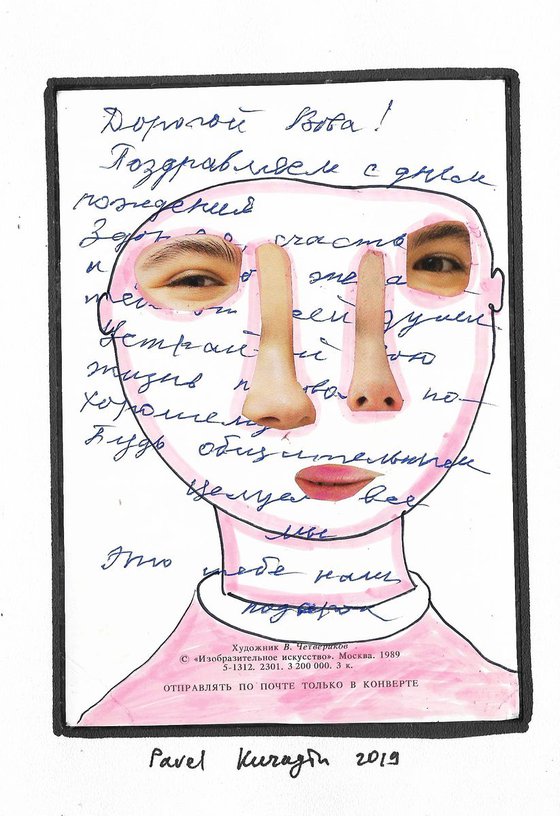 Дорогой Вова!
Поздравляем с днем
рождения
счасть
и жела
души.
жизнь по-
хорошему
Будь общительным
Целуем все
мы
Это тебе наш
подарок
Художник В. Четвериков
© «Изобразительное искусство». Москва. 1989
5-1312. 2301. 3 200 000. 3 к.
ОТПРАВЛЯТЬ ПО ПОЧТЕ ТОЛЬКО В КОНВЕРТЕ
Pavel Kuragin 2019